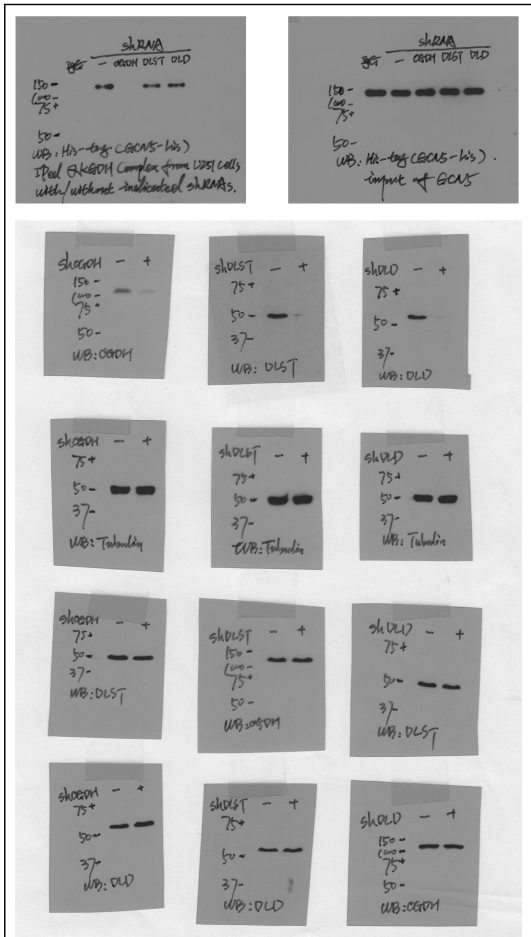 shRNA
IgG - OGDH DLST DLD
150 -
100 -
75 +
50 -
WB: His-tag (GCN5-his)
IPed αKGDH Complex from U251 cells
with/without indicated shRNAs.
shRNA
IgG - OGDH DLST DLD
150 -
100 -
75 +
50 -
WB: His-tag (GCN5-his).
input of GCN5
shOGDH - +
150 -
100 -
75 +
50 -
WB: OGDH
shDLST - +
75 +
50 -
37 -
WB: DLST
shDLD - +
75 +
50 -
37 -
WB: DLD
shOGDH - +
75 +
50 -
37 -
WB: Tubulin
shDLST - +
75 +
50 -
37 -
WB: Tubulin
shDLD - +
75 +
50 -
37 -
WB: Tubulin
shOGDH - +
75 +
50 -
37 -
WB: DLST
shDLST - +
150 -
100 -
75 +
50 -
WB: OGDH
shDLD - +
75 +
50 -
37 -
WB: DLST
shOGDH - +
75 +
50 -
37 -
WB: DLD
shDLST - +
75 +
50 -
37 -
WB: DLD
shDLD - +
150 -
100 -
75 +
50 -
WB: OGDH